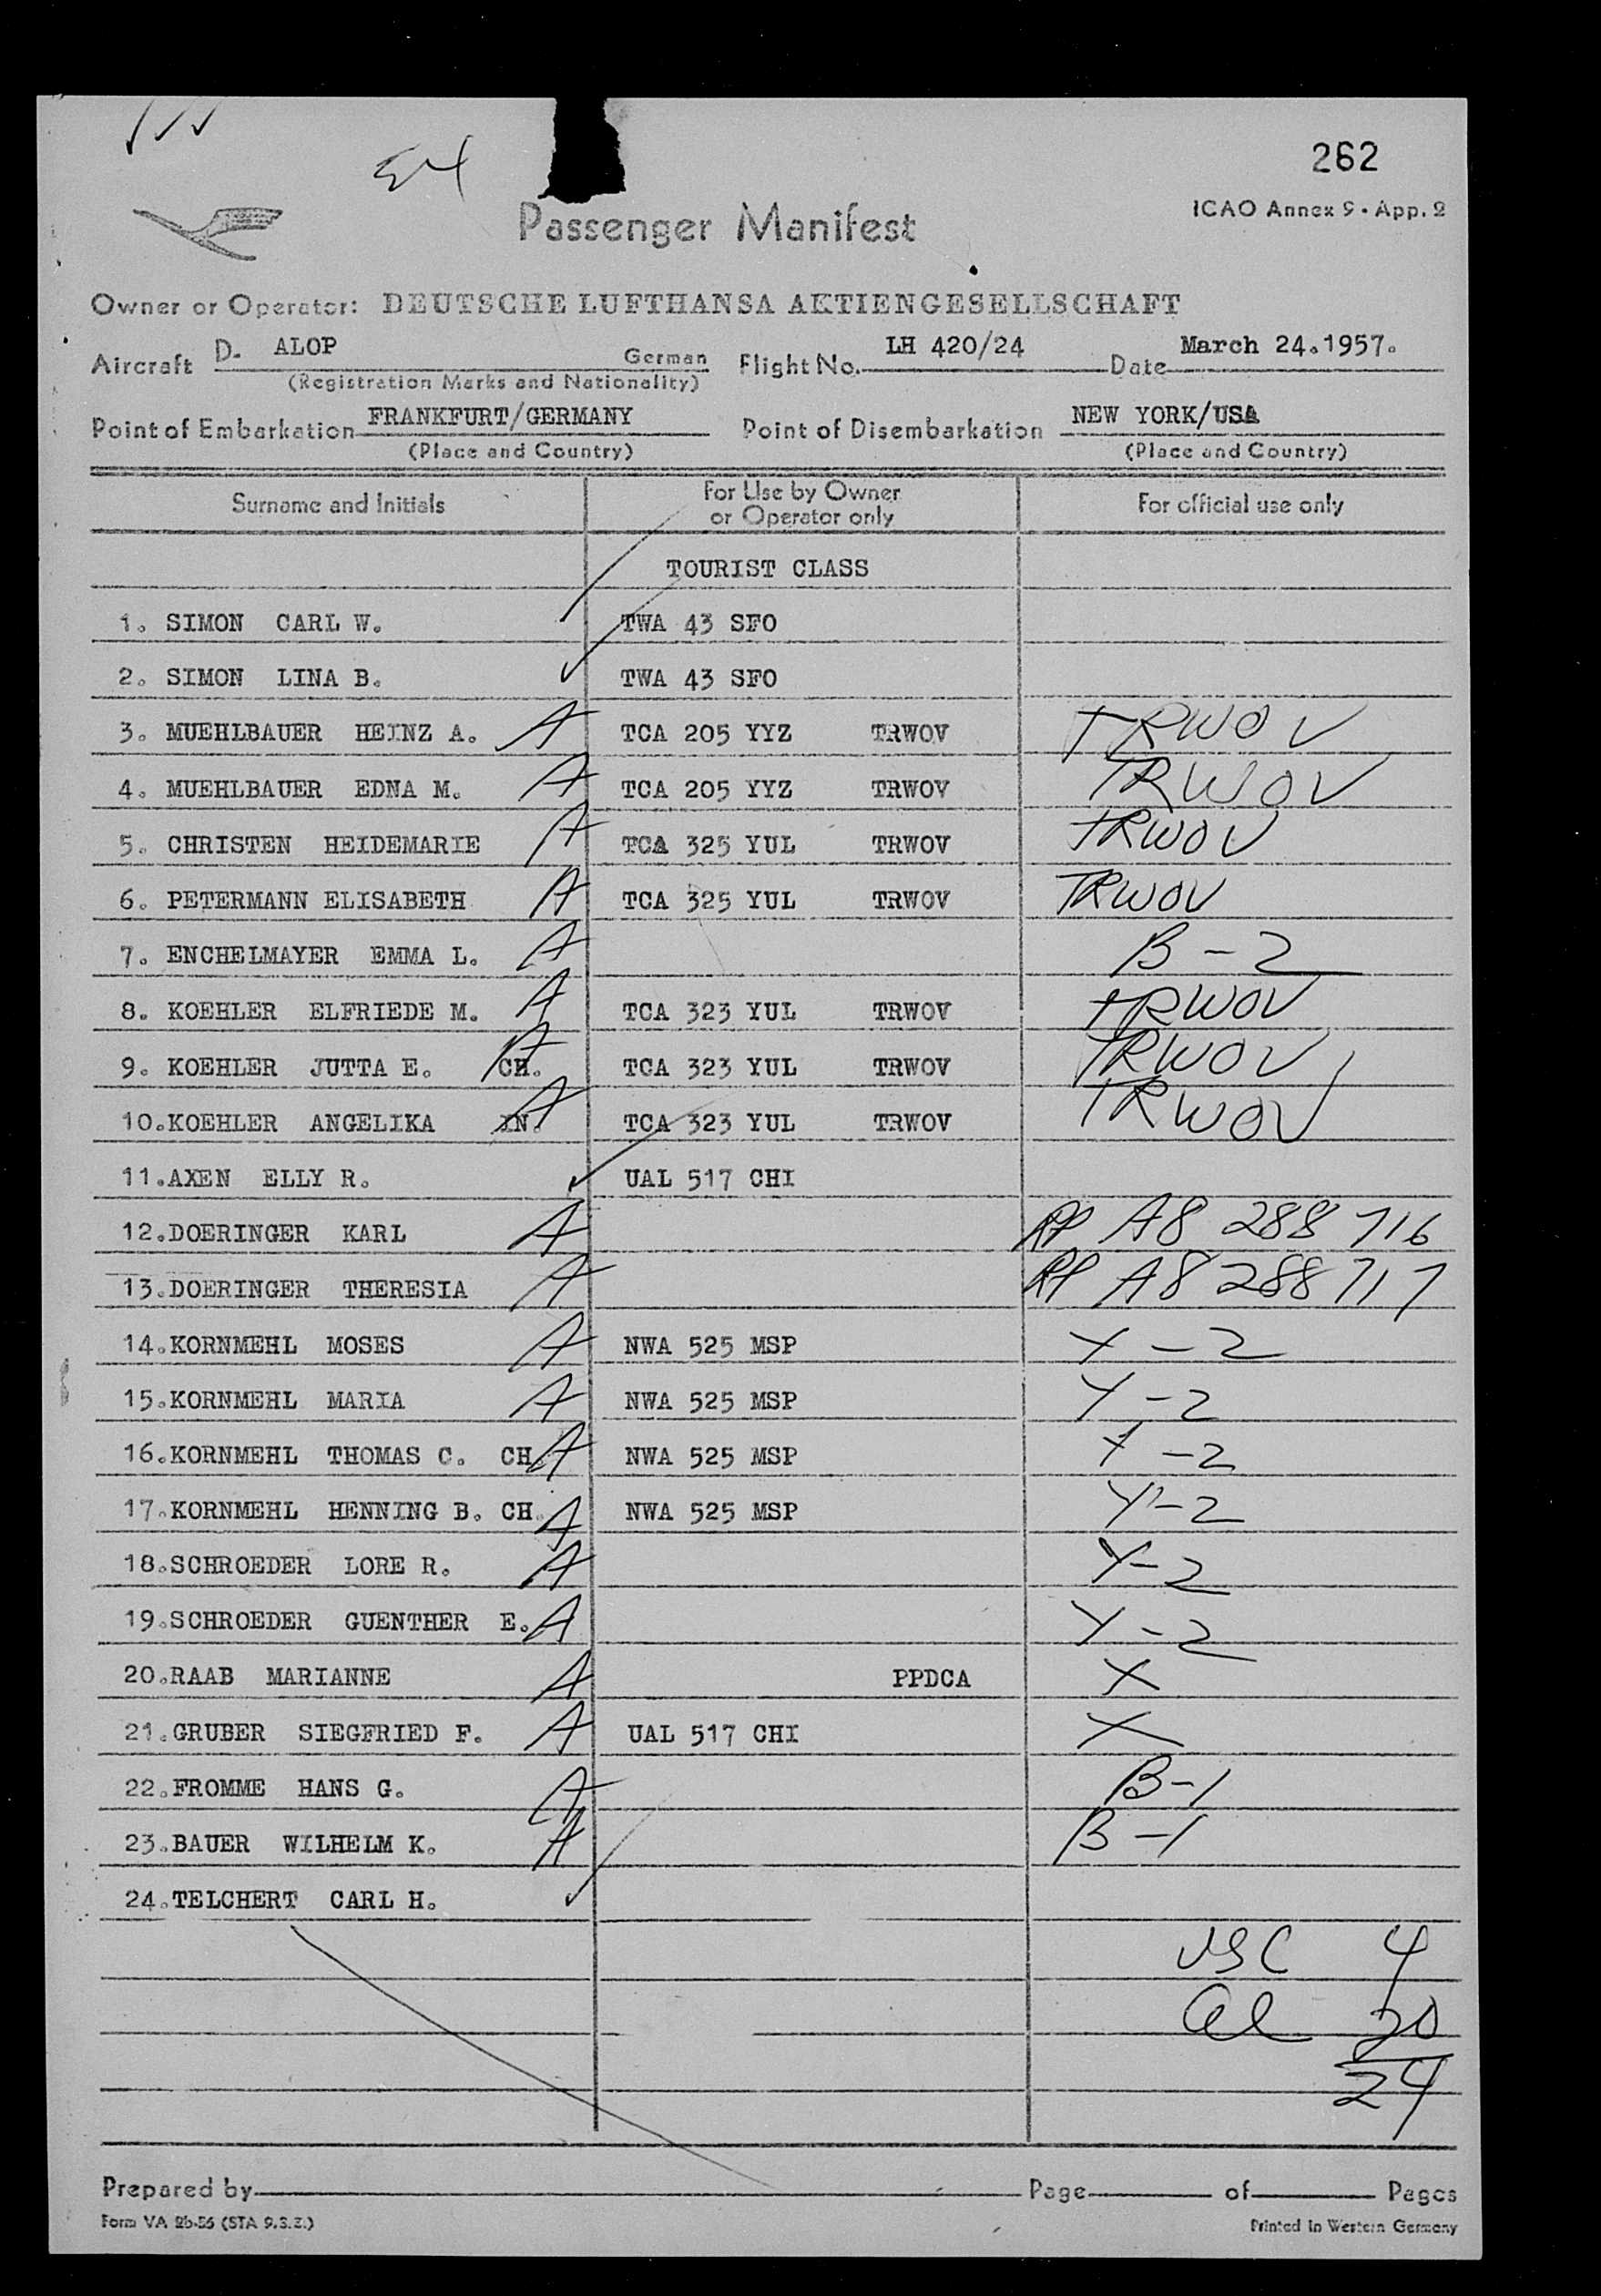 24
262
Passenger Manifest
ICAO Annex 9 · App. 2
Owner or Operator: DEUTSCHE LUFTHANSA AKTIENGESELLSCHAFT
Aircraft D- ALOP German Flight No. LH 420/24 Date March 24.1957.
(Registration Marks and Nationality)
Point of Embarkation FRANKFURT/GERMANY Point of Disembarkation NEW YORK/USA
(Place and Country) (Place and Country)
Surname and Initials For Use by Owner or Operator only For official use only
TOURIST CLASS
1. SIMON CARL W. TWA 43 SFO
2. SIMON LINA B. TWA 43 SFO
3. MUEHLBAUER HEINZ A. A TCA 205 YYZ TRWOV TRWOV
4. MUEHLBAUER EDNA M. A TCA 205 YYZ TRWOV TRWOV
5. CHRISTEN HEIDEMARIE A TCA 325 YUL TRWOV TRWOV
6. PETERMANN ELISABETH A TCA 325 YUL TRWOV TRWOV
7. ENCHELMAYER EMMA L. A B-2
8. KOEHLER ELFRIEDE M. A TCA 323 YUL TRWOV TRWOV
9. KOEHLER JUTTA E. CH. A TCA 323 YUL TRWOV TRWOV
10.KOEHLER ANGELIKA IN. A TCA 323 YUL TRWOV TRWOV
11.AXEN ELLY R. UAL 517 CHI
12.DOERINGER KARL A RP A8 288 716
13.DOERINGER THERESIA A RP A8 288 717
14.KORNMEHL MOSES A NWA 525 MSP Y-2
15.KORNMEHL MARIA A NWA 525 MSP Y-2
16.KORNMEHL THOMAS C. CH. A NWA 525 MSP Y-2
17.KORNMEHL HENNING B. CH. A NWA 525 MSP Y-2
18.SCHROEDER LORE R. A Y-2
19.SCHROEDER GUENTHER E. A Y-2
20.RAAB MARIANNE A PPDCA X
21.GRUBER SIEGFRIED F. A UAL 517 CHI X
22.FROMME HANS G. A B-1
23.BAUER WILHELM K. A B-1
24.TELCHERT CARL H.
USC 4
al 20
24
Prepared by Page of Pages
Form VA 2b-56 (STA 9.3.Z.) Printed in Western Germany